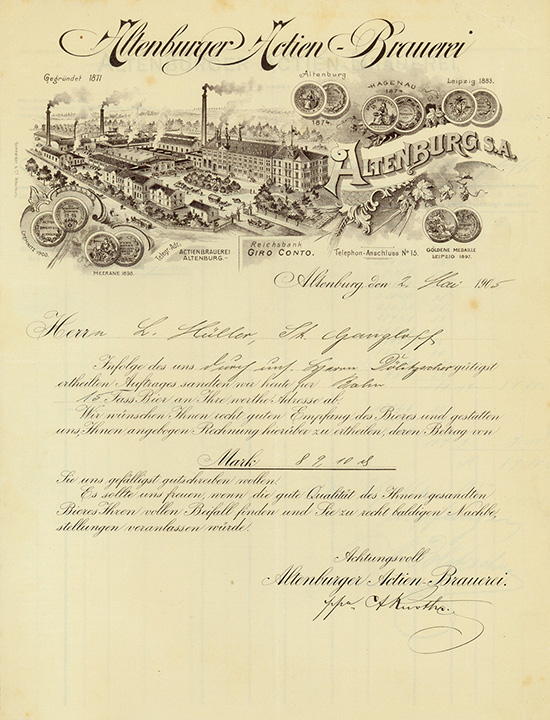 Altenburger Actien-Brauerei
Gegründet 1871
Altenburg
1874.
HAGENAU
1874
Leipzig 1883.
ALTENBURG S.A.
CHEMNITZ 1900.
MEERANE 1898.
Telegr.-Adr.
ACTIENBRAUEREI
ALTENBURG.
Reichsbank
GIRO CONTO.
Telephon-Anschluss No 15.
GOLDENE MEDAILLE
LEIPZIG 1897.
Altenburg, den 2. Mai 1905
Herrn L. Müller, St. Gangloff
Infolge des uns durch uns. Herrn gütigst
ertheilten Auftrages sandten wir heute per Bahn
15 Fass Bier an Ihre werthe Adresse ab.
Wir wünschen Ihnen recht guten Empfang des Bieres und gestatten
uns, Ihnen angebogen Rechnung hierüber zu ertheilen, deren Betrag von
Mark 8
Sie uns gefälligst gutschreiben wollen.
Es sollte uns freuen, wenn die gute Qualität des Ihnen gesandten
Bieres Ihren vollen Beifall finden und Sie zu recht baldigen Nachbe-
stellungen veranlassen würde.
Achtungsvoll
Altenburger Actien-Brauerei.
ppa.